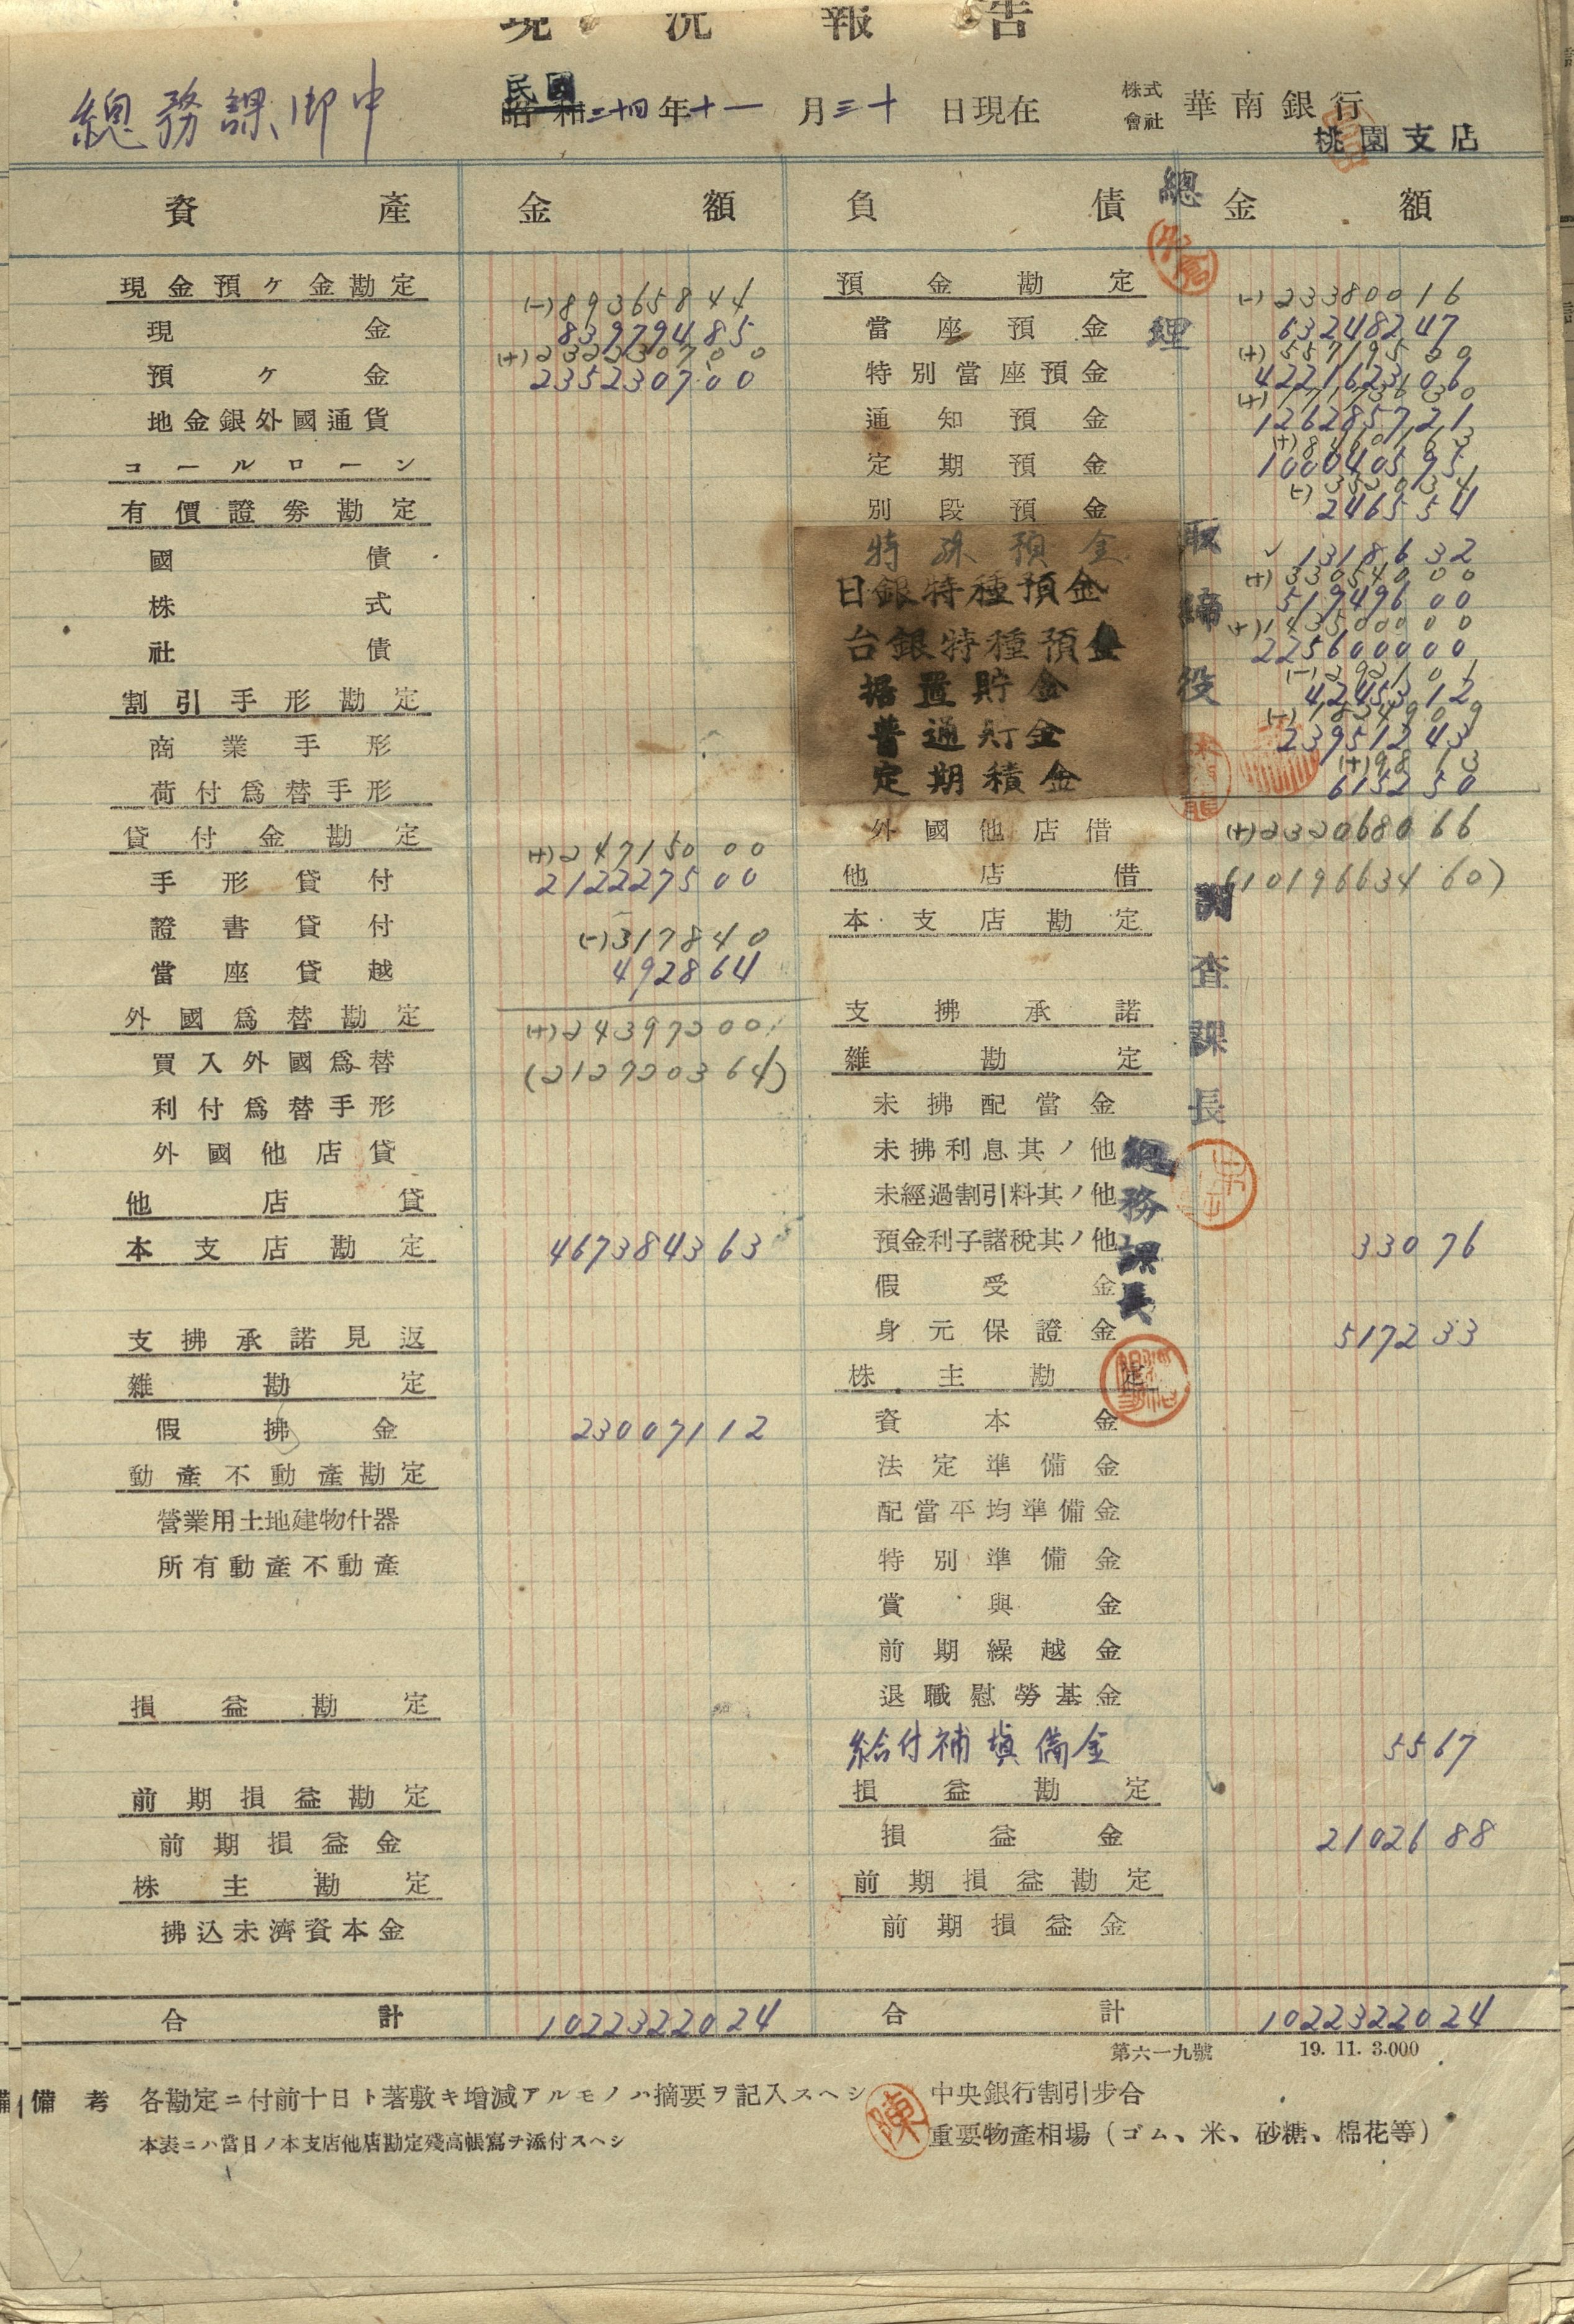 現況報告
總務課御中
民國
昭和三十四年十一月三十日現在
株式會社 華南銀行
桃園支店
資產 金額 負債 金額
總理
取締役
調查課長
總務課長
現金預ヶ金勘定 (-)89365844
現金 83979485
(+)232230700
預ヶ金 235230700
地金銀外國通貨
コールローン
有價證券勘定
國債
株式
社債
割引手形勘定
商業手形
荷付爲替手形
貸付金勘定 (+)24715000
手形貸付 212227500
證書貸付 (-)317840
當座貸越 492864
外國爲替勘定 (+)24397200
買入外國爲替 (212720364)
利付爲替手形
外國他店貸
他店貸
本支店勘定 467384363
支拂承諾見返
雜勘定
假拂金 23007112
動產不動產勘定
營業用土地建物什器
所有動產不動產
損益勘定
前期損益勘定
前期損益金
株主勘定
拂込未濟資本金
合計 1022322024
預金勘定 (-)23380016
當座預金 63248247
(+)55719500
特別當座預金 422162306
通知預金 126285721
定期預金 100040595
別段預金 246554
特殊預金 1318632
(+)33054000
日銀特種預金 51949600
(+)143500000
台銀特種預金 225600000
据置貯金 4245312
普通貯金 23951243
(+)9813
定期積金 615250
外國他店借 (+)232068066
他店借 (1019663460)
本支店勘定
支拂承諾
雜勘定
未拂配當金
未拂利息其ノ他
未經過割引料其ノ他
預金利子諸稅其ノ他 33076
假受金
身元保證金 517233
株主勘定
資本金
法定準備金
配當平均準備金
特別準備金
賞與金
前期繰越金
退職慰勞基金
給付補塡備金 5567
損益勘定
損益金 2102688
前期損益勘定
前期損益金
合計 1022322024
第六一九號 19. 11. 3.000
備考 各勘定ニ付前十日ト著敷キ增減アルモノハ摘要ヲ記入スヘシ
本表ニハ當日ノ本支店他店勘定殘高帳寫ヲ添付スヘシ
陳
中央銀行割引步合
重要物產相場（ゴム、米、砂糖、棉花等）